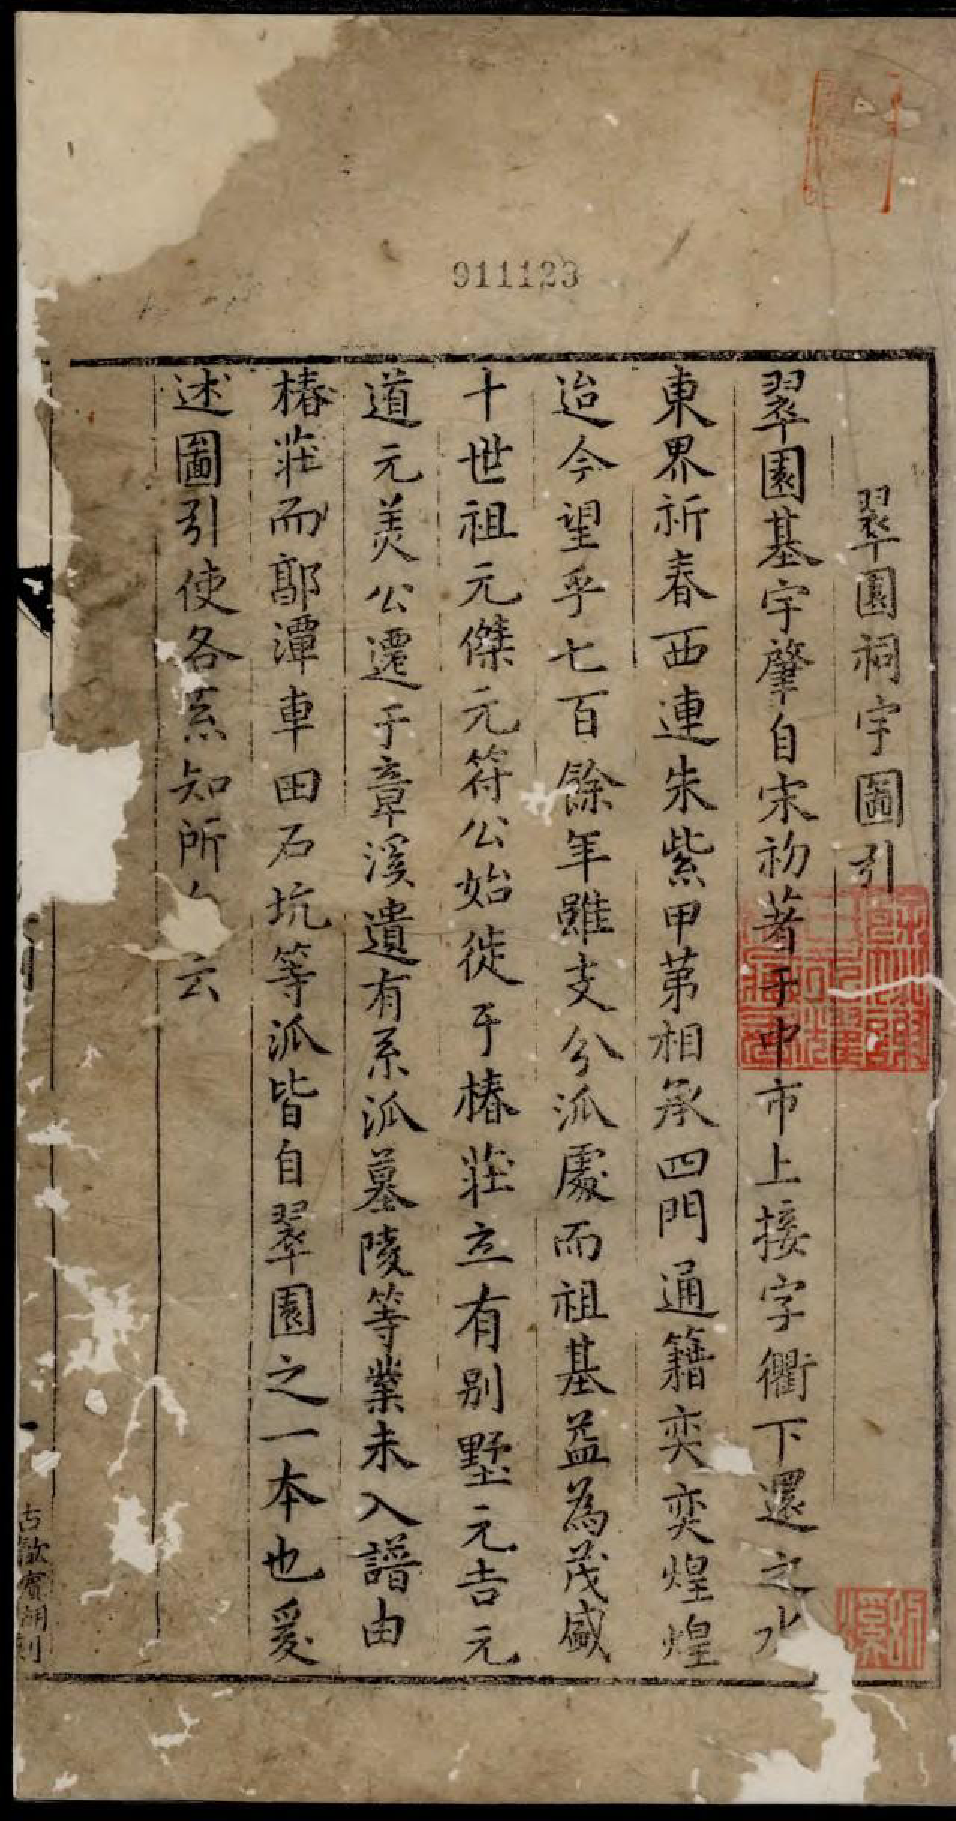 911123
翠園祠宇圖引
翠園基宇肇自宋初著于中市上接字衢下還之水
東界祈春西連朱紫甲第相承四門通籍奕奕煌煌
迨今望乎七百餘年雖支分派處而祖基益為茂盛
十世祖元傑元符公始徙于椿莊立有別墅元吉元
道元美公遷于章溪遺有系派墓陵等業未入譜由
椿莊而鄣潭車田石坑等派皆自翠園之一本也爰
述圖引使各系知所云
古歙黃